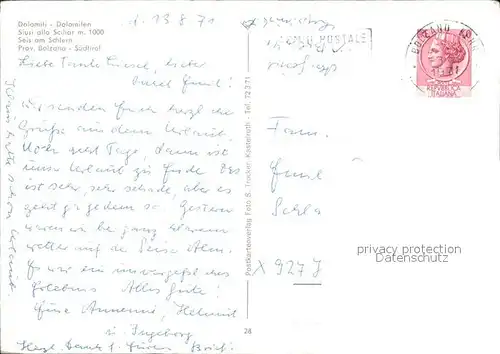 Dolomiti - Dolomiten
Siusi allo Sciliar m. 1000
Seis am Schlern
Prov. Bolzano - Südtirol
d. 13 8 71
Liebe Tante Liesel, lieber
Onkel Emil!
Wir senden Euch herzl. che
Grüße aus dem Urlaub.
Noch zwei Tage, dann ist
unser Urlaub zu Ende. Es
ist sehr, sehr schade, aber es
geht ja jedem so. Gestern
waren wir bei ganz klarem
Wetter auf der Seiser Alm.
Es war ein unvergeßliches
Erlebnis. Alles Gute!
Eure Annemie, Helmut
u. Ingeborg
Herzl. Dank f. Euren Brief!
Postkartenverlag Foto S. Trocker, Kastelruth - Tel. 72371
28
POSTALE
BOLZANO
REPUBBLICA
ITALIANA
Fam.
Emil
X 927 J
privacy protection
Datenschutz